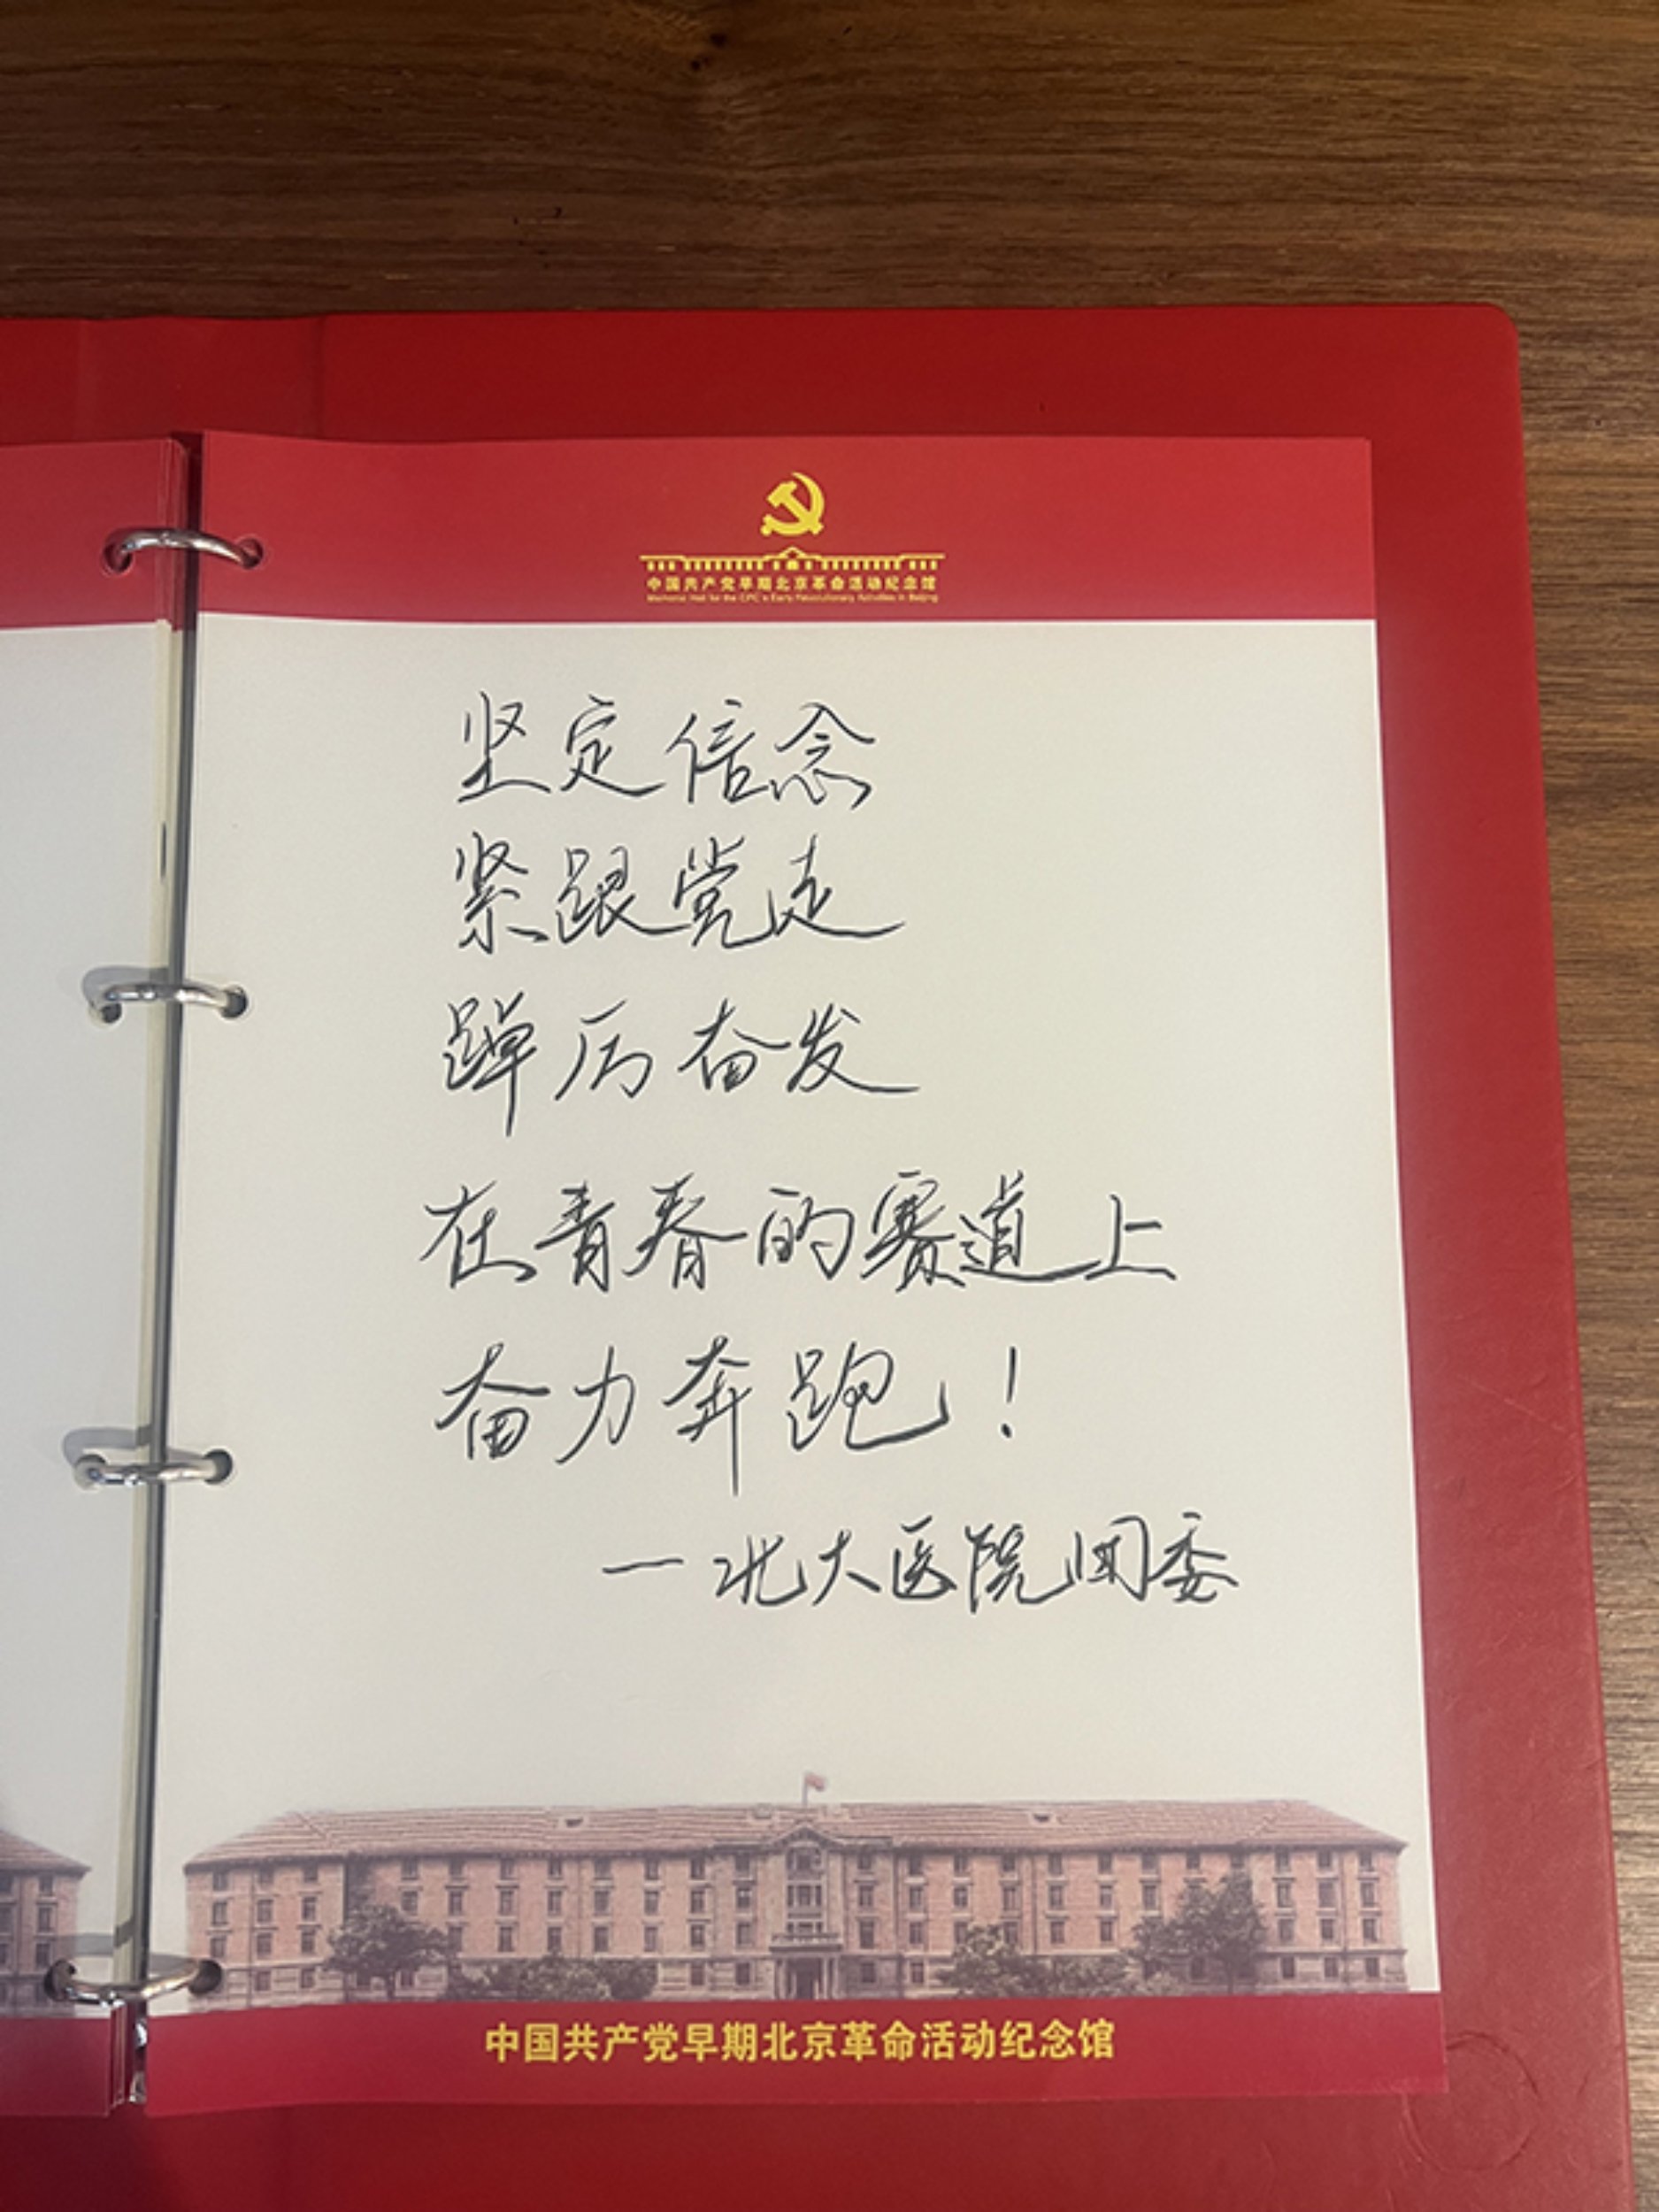 中国共产党早期北京革命活动纪念馆
Memorial Hall for the CPC's Early Revolutionary Activities in Beijing
坚定信念
紧跟党走
踔厉奋发
在青春的赛道上
奋力奔跑！
—北大医院团委
中国共产党早期北京革命活动纪念馆